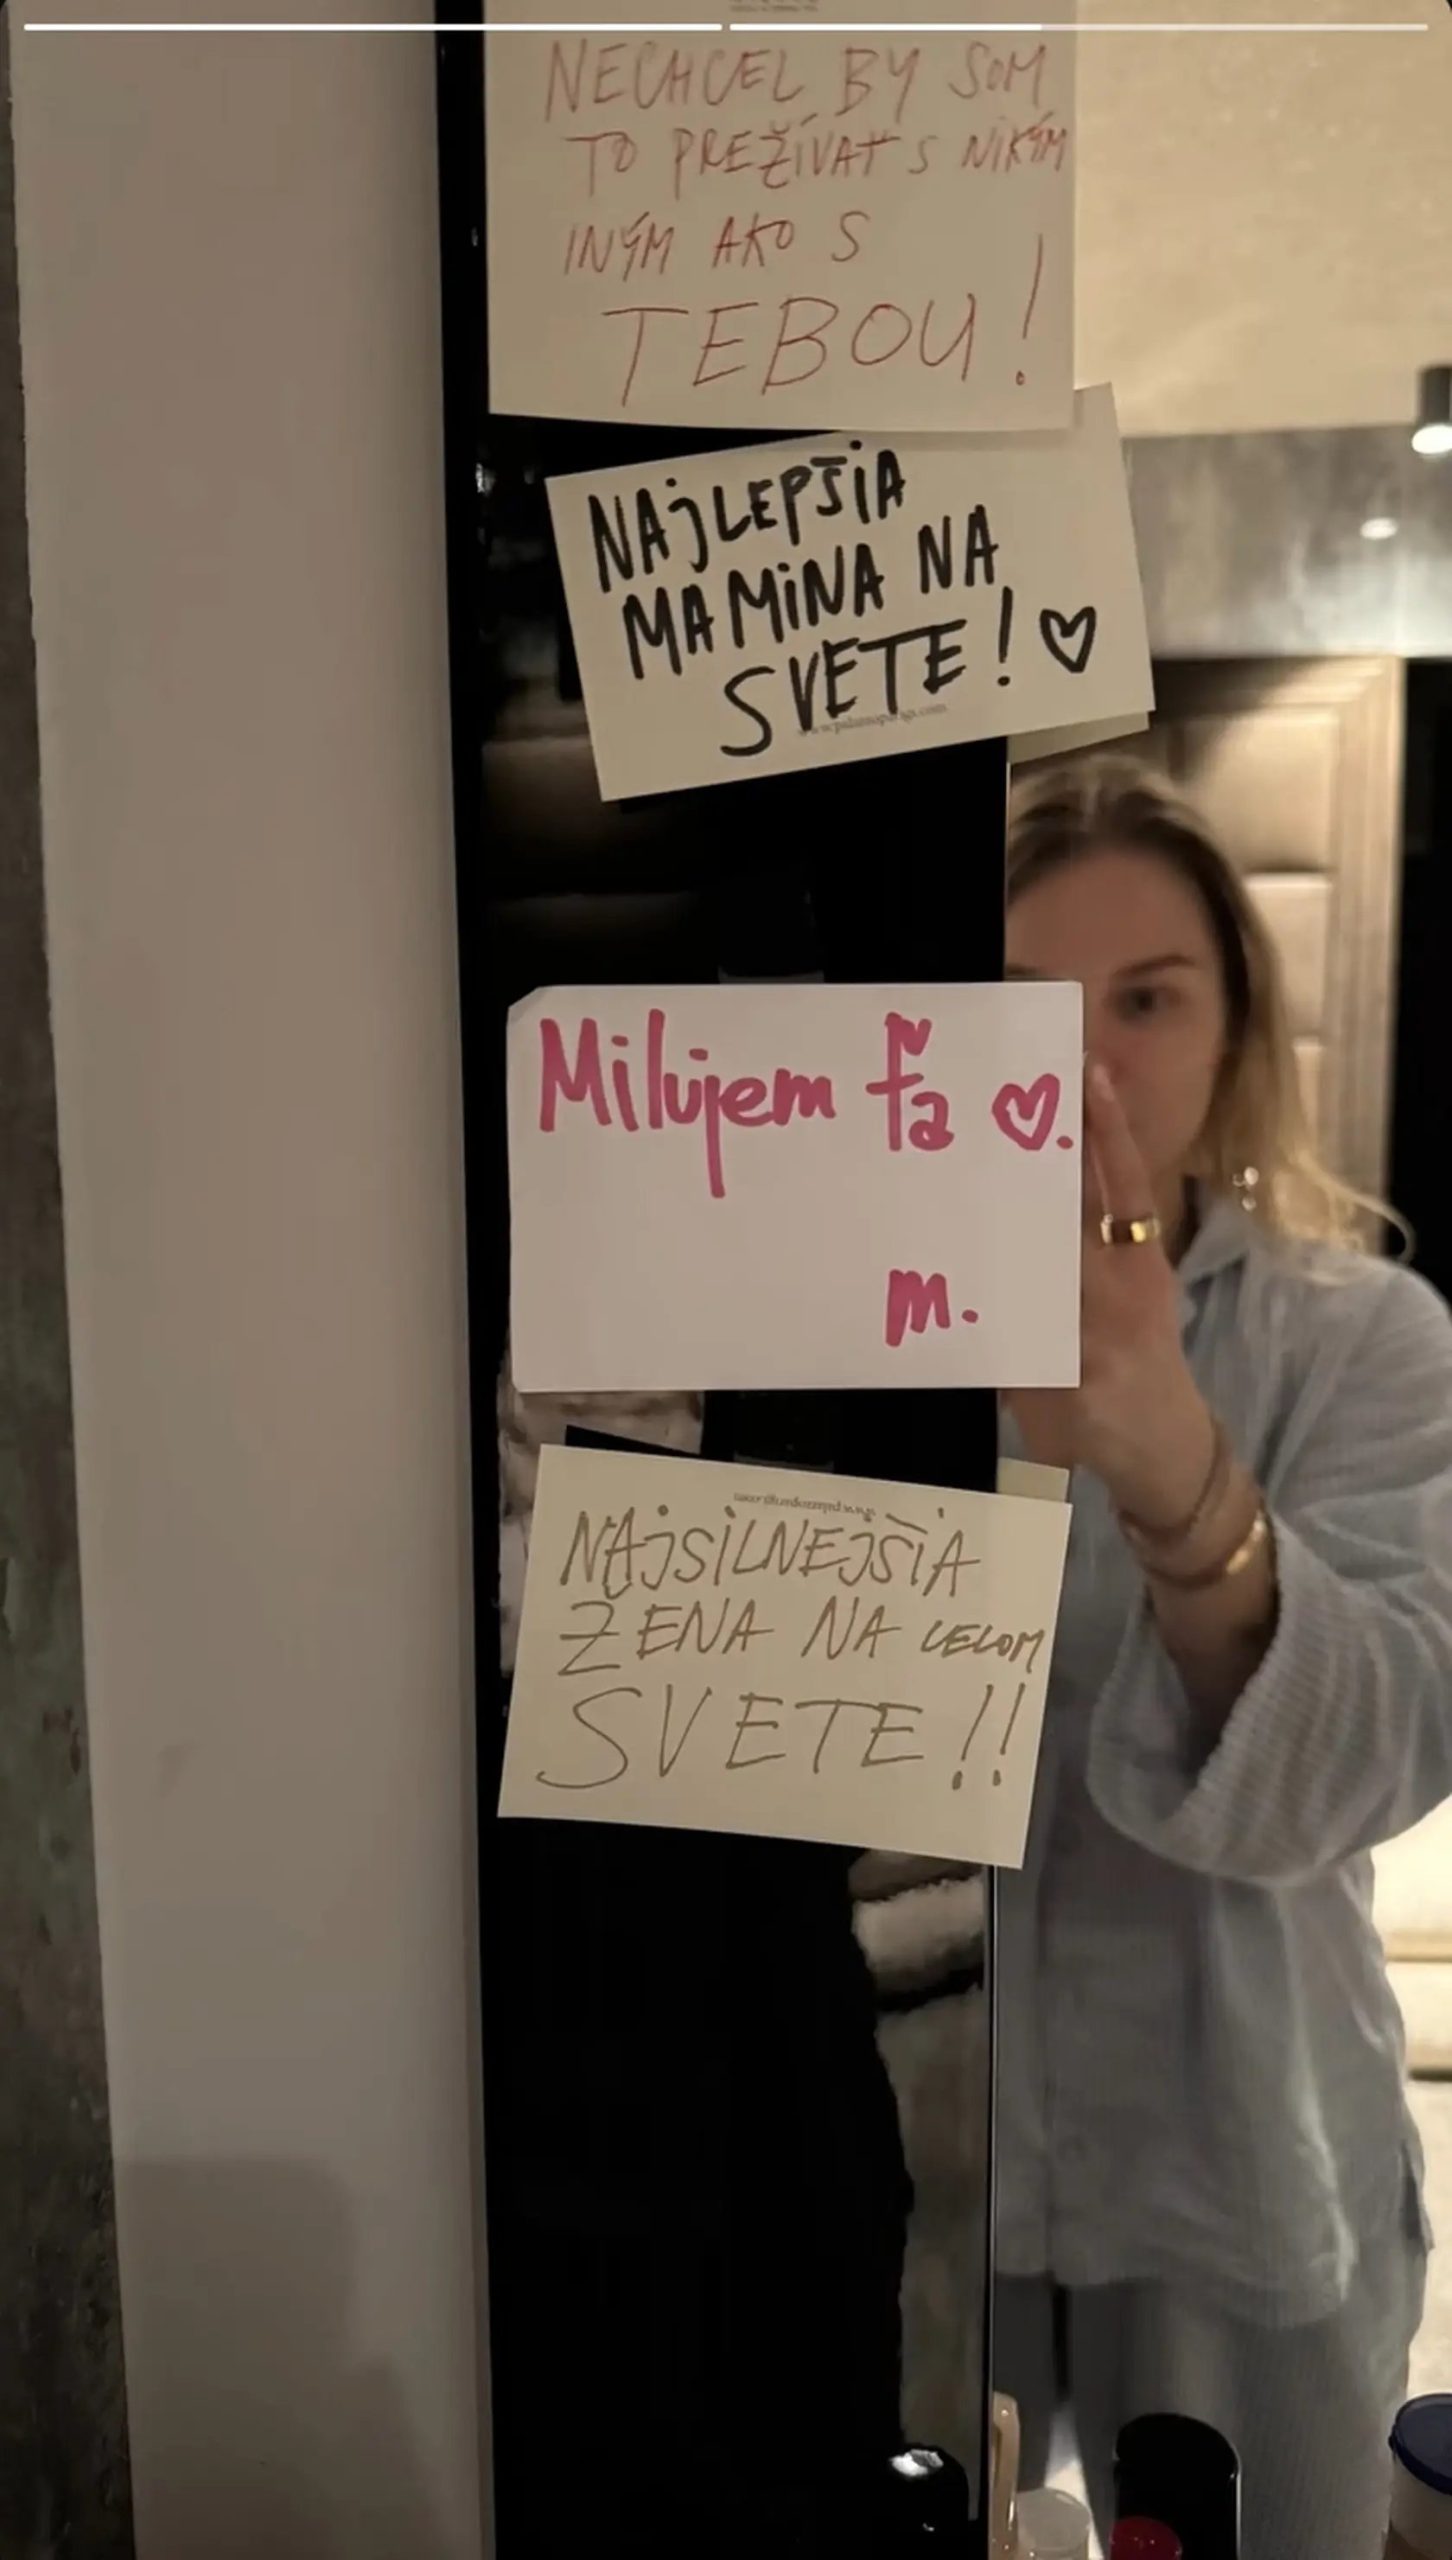 NECHCEL BY SOM
TO PREŽÍVAŤ S NIKÝM
INÝM AKO S
TEBOU!
NAJLEPŠIA
MAMINA NA
SVETE! ♡
Milujem ťa ♡.
m.
NAJSILNEJŠIA
ŽENA NA CELOM
SVETE!!